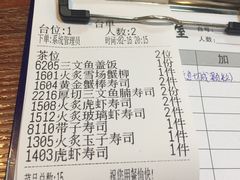 台单
台位:1 人数:2
下单:系统管理员 时间:02-15 20:15
茶位 2位
6205三文鱼盖饭 1份
1601火炙雪场蟹柳 1件
1604黄金蟹棒寿司 2件
2216厚切三文鱼腩寿司
1508火炙虎虾寿司 2件
1512火炙玻璃虾寿司 2件
8110带子寿司 2件
1305火炙玉子寿司 1件
1403虎虾寿司 1件
祝您用餐愉快!
人数:
加